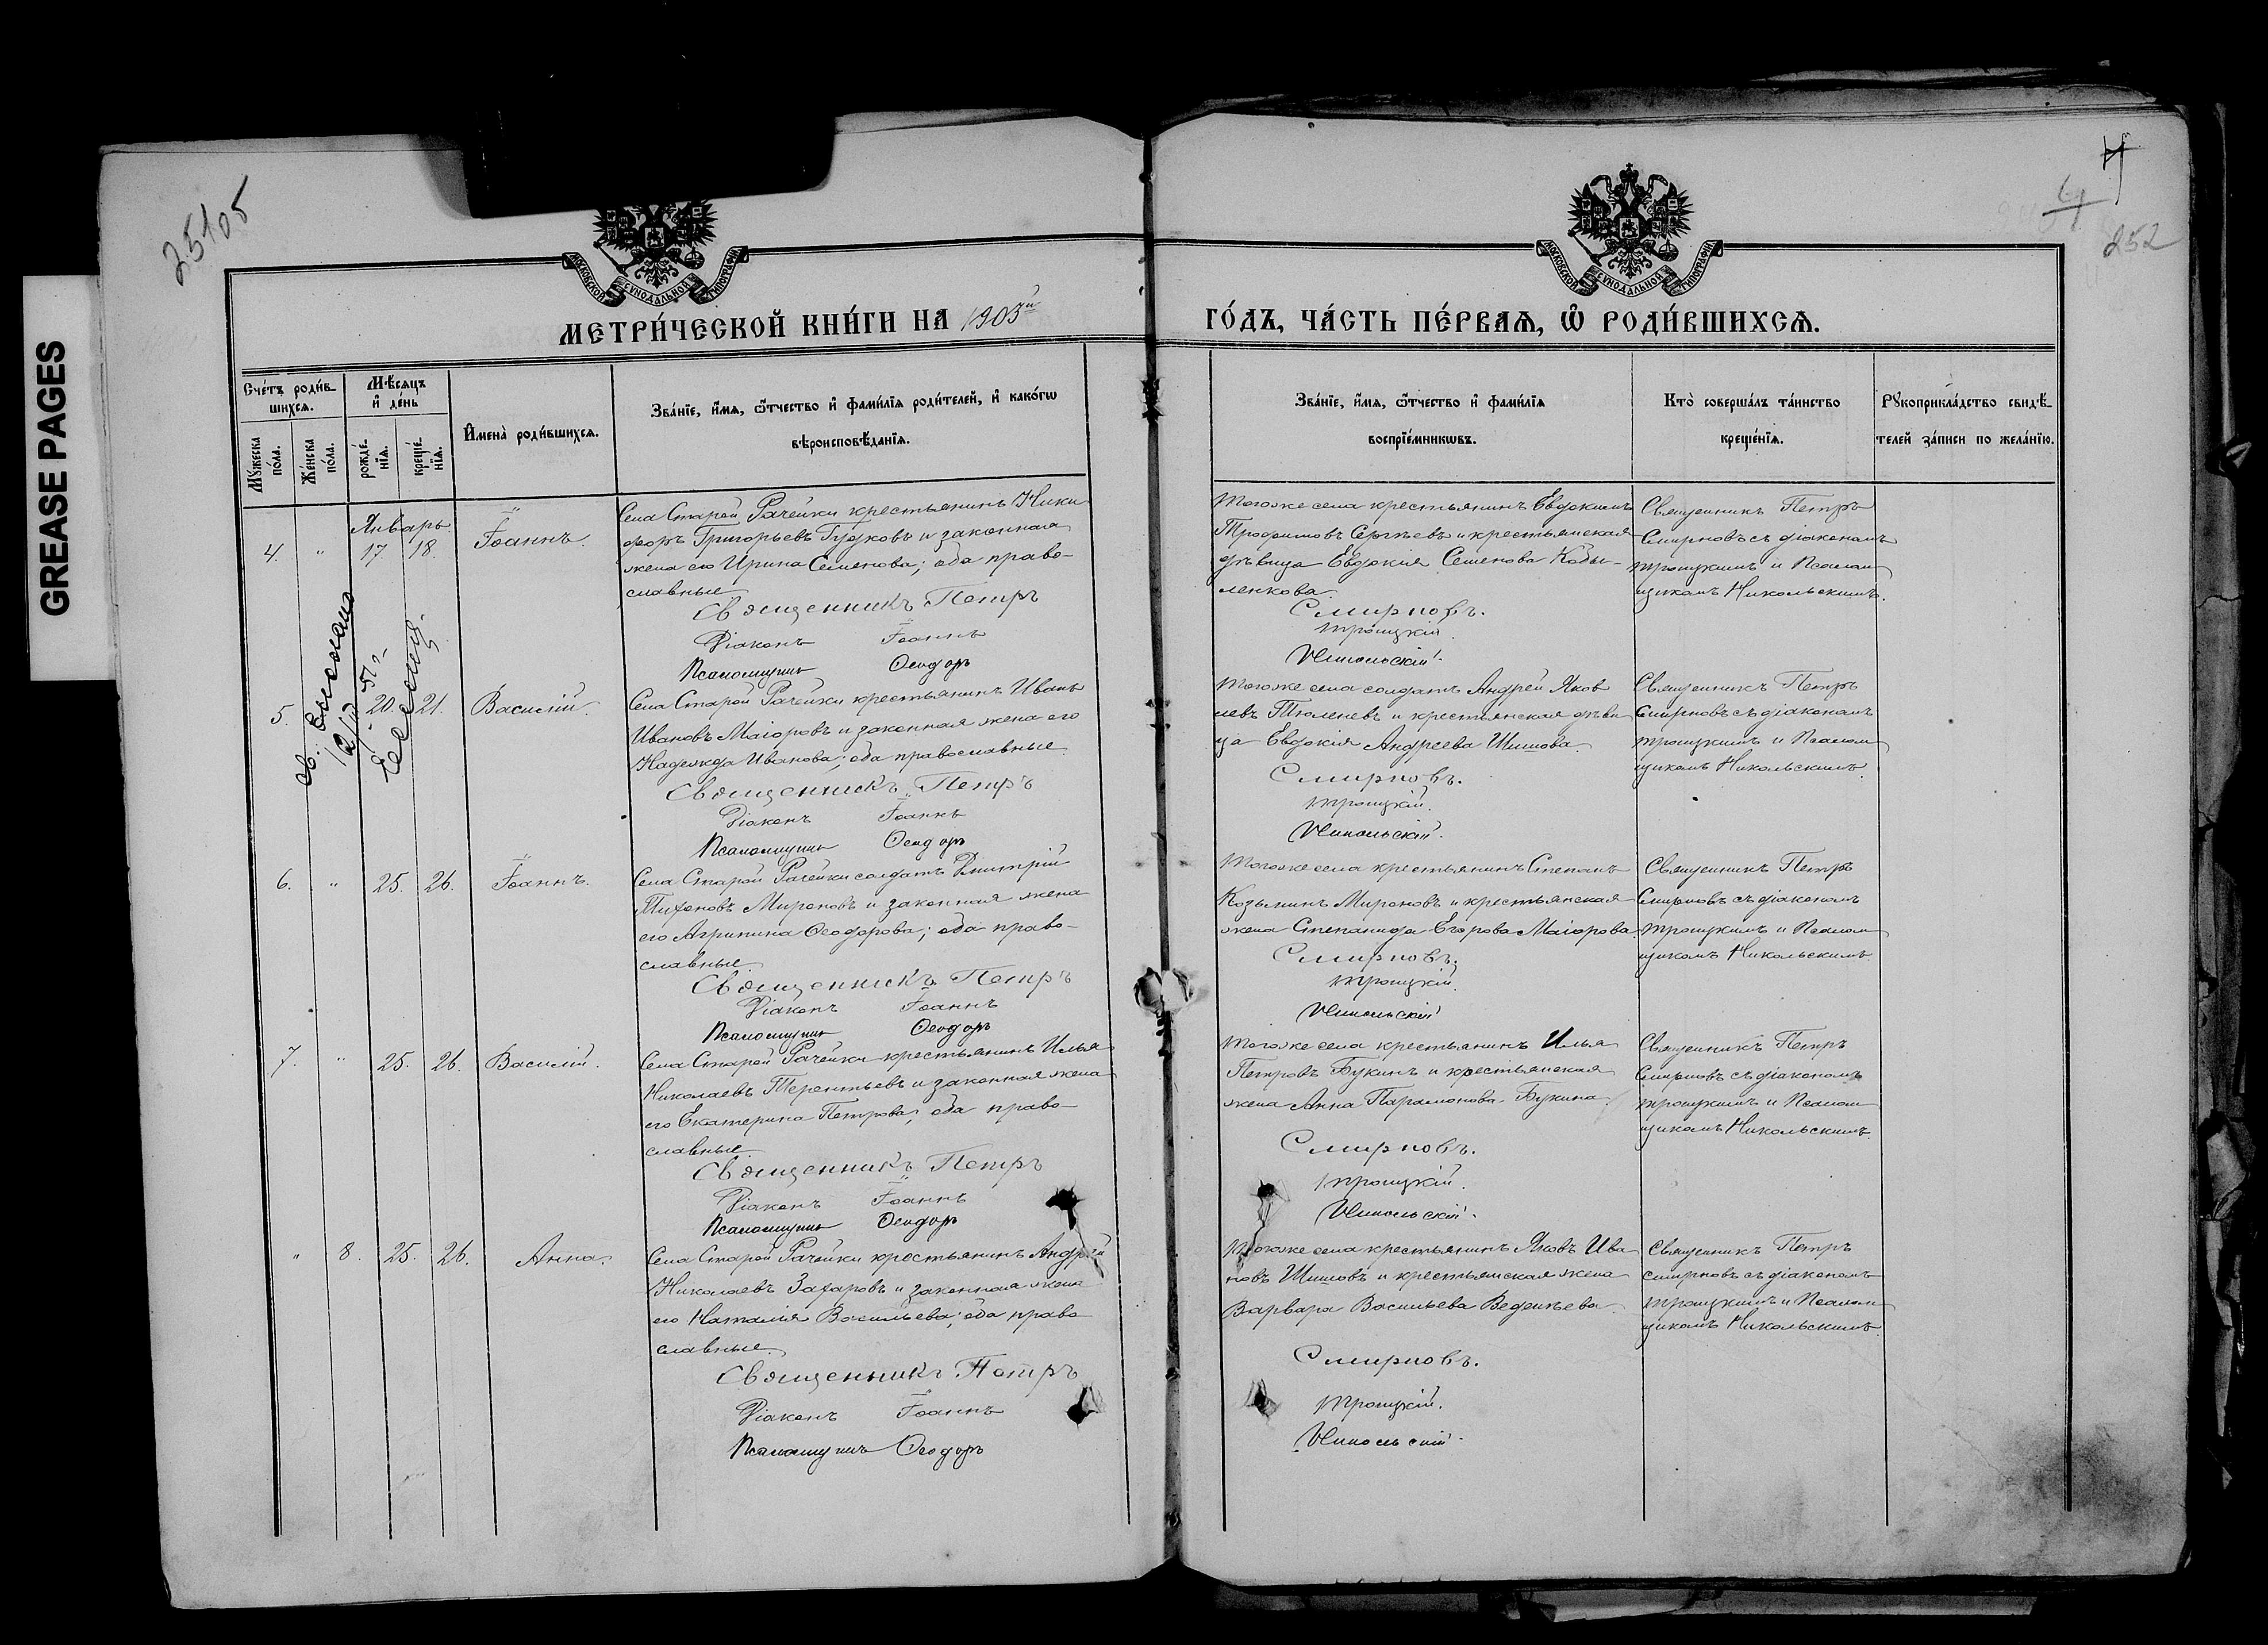 GREASE PAGES
25105
252
МОСКОВСКОЙ СѴНОДАЛЬНОЙ ТИПОГРАФІИ
МОСКОВСКОЙ СѴНОДАЛЬНОЙ ТИПОГРАФІИ
МЕТРИ́ЧЕСКОЙ КНИ́ГИ НА 1905й
ГО́ДЪ, ЧА́СТЬ ПЕ́РВАѦ, Ѡ҆ РОДИ́ВШИХСѦ.
Сче́тъ роди́в
шихсѧ.
Мѣ́сѧцъ
и҆ де́нь
Мꙋ́жеска
по́ла.
Же́нска
по́ла.
рожде́
нїѧ.
креще́
нїѧ.
И҆мена̀ роди́вшихсѧ.
Зва́нїе, и҆́мѧ, ѻ҆́тчество и҆ фами́лїѧ роди́телей, и҆ како́гѡ
вѣроисповѣ́данїѧ.
Зва́нїе, и҆́мѧ, ѻ҆́тчество и҆ фами́лїѧ
воспрїе́мникѡвъ.
Кто̀ соверша́лъ та́инство
креще́нїѧ.
Рꙋкоприкла́дство свидѣ́
телей за́писи по жела́нїю.
Январь
4. " 17. 18. Іоаннъ.
Села Старой Рачейки крестьянинъ Ники
форъ Григорьевъ Гудковъ и законная
жена его Ирина Семенова; оба право-
славные
Священникъ Петръ
Діаконъ Іоаннъ
Псаломщикъ Ѳеодоръ
Тогоже села крестьянинъ Евдокимъ
Трофимовъ Сергѣевъ и крестьянская
дѣвица Евдокія Семенова Кобы-
ленкова
Смирновъ.
Троицкій
Никольскій.
Священникъ Петръ
Смирновъ съ діакономъ
Троицкимъ и Псалом
щикомъ Никольскимъ.
5. 20. 21. Василій.
Села Старой Рачейки крестьянинъ Иванъ
Ивановъ Маіоровъ и законная жена его
Надежда Иванова; оба православные
Священникъ Петръ
Діаконъ Іоаннъ
Псаломщикъ Ѳеодоръ
Тогоже села солдатъ Андрей Яков
левъ Тюленевъ и крестьянская дѣви
ца Евдокія Андреева Шишова
Смирновъ.
Троицкій.
Никольскій.
Священникъ Петръ
Смирновъ съ діакономъ
Троицкимъ и Псалом
щикомъ Никольскимъ.
6. " 25. 26. Іоаннъ.
Села Старой Рачейки солдатъ Дмитрій
Тихоновъ Мироновъ и законная жена
его Агрипина Ѳеодорова; оба право-
славные
Священникъ Петръ
Діаконъ Іоаннъ
Псаломщикъ Ѳеодоръ
Тогоже села крестьянинъ Степанъ
Козьминъ Мироновъ и крестьянская
жена Степанида Егорова Маіорова
Смирновъ.
Троицкій.
Никольскій
Священникъ Петръ
Смирновъ съ діакономъ
Троицкимъ и Псалом
щикомъ Никольскимъ
7. " 25. 26. Василій.
Села Старой Рачейки крестьянинъ Илья
Николаевъ Терентьевъ и законная жена
его Екатерина Петрова; оба право-
славные
Священникъ Петръ
Діаконъ Іоаннъ
Псаломщикъ Ѳеодоръ
Тогоже села крестьянинъ Илья
Петровъ Букинъ и крестьянская
жена Анна Парамонова Букина
Смирновъ.
Троицкій.
Никольскій.
Священникъ Петръ
Смирновъ съ діакономъ
Троицкимъ и Псалом
щикомъ Никольскимъ
" 8. 25. 26. Анна.
Села Старой Рачейки крестьянинъ Андрей
Николаевъ Захаровъ и законная жена
его Наталія Васильева; оба право
славные
Священникъ Петръ
Діаконъ Іоаннъ
Псаломщикъ Ѳеодоръ
Тогоже села крестьянинъ Яковъ Ива
новъ Шишовъ и крестьянская жена
Варвара Васильева Веденѣева
Смирновъ.
Троицкій.
Никольскій.
Священникъ Петръ
Смирновъ съ діакономъ
Троицкимъ и Псалом
щикомъ Никольскимъ